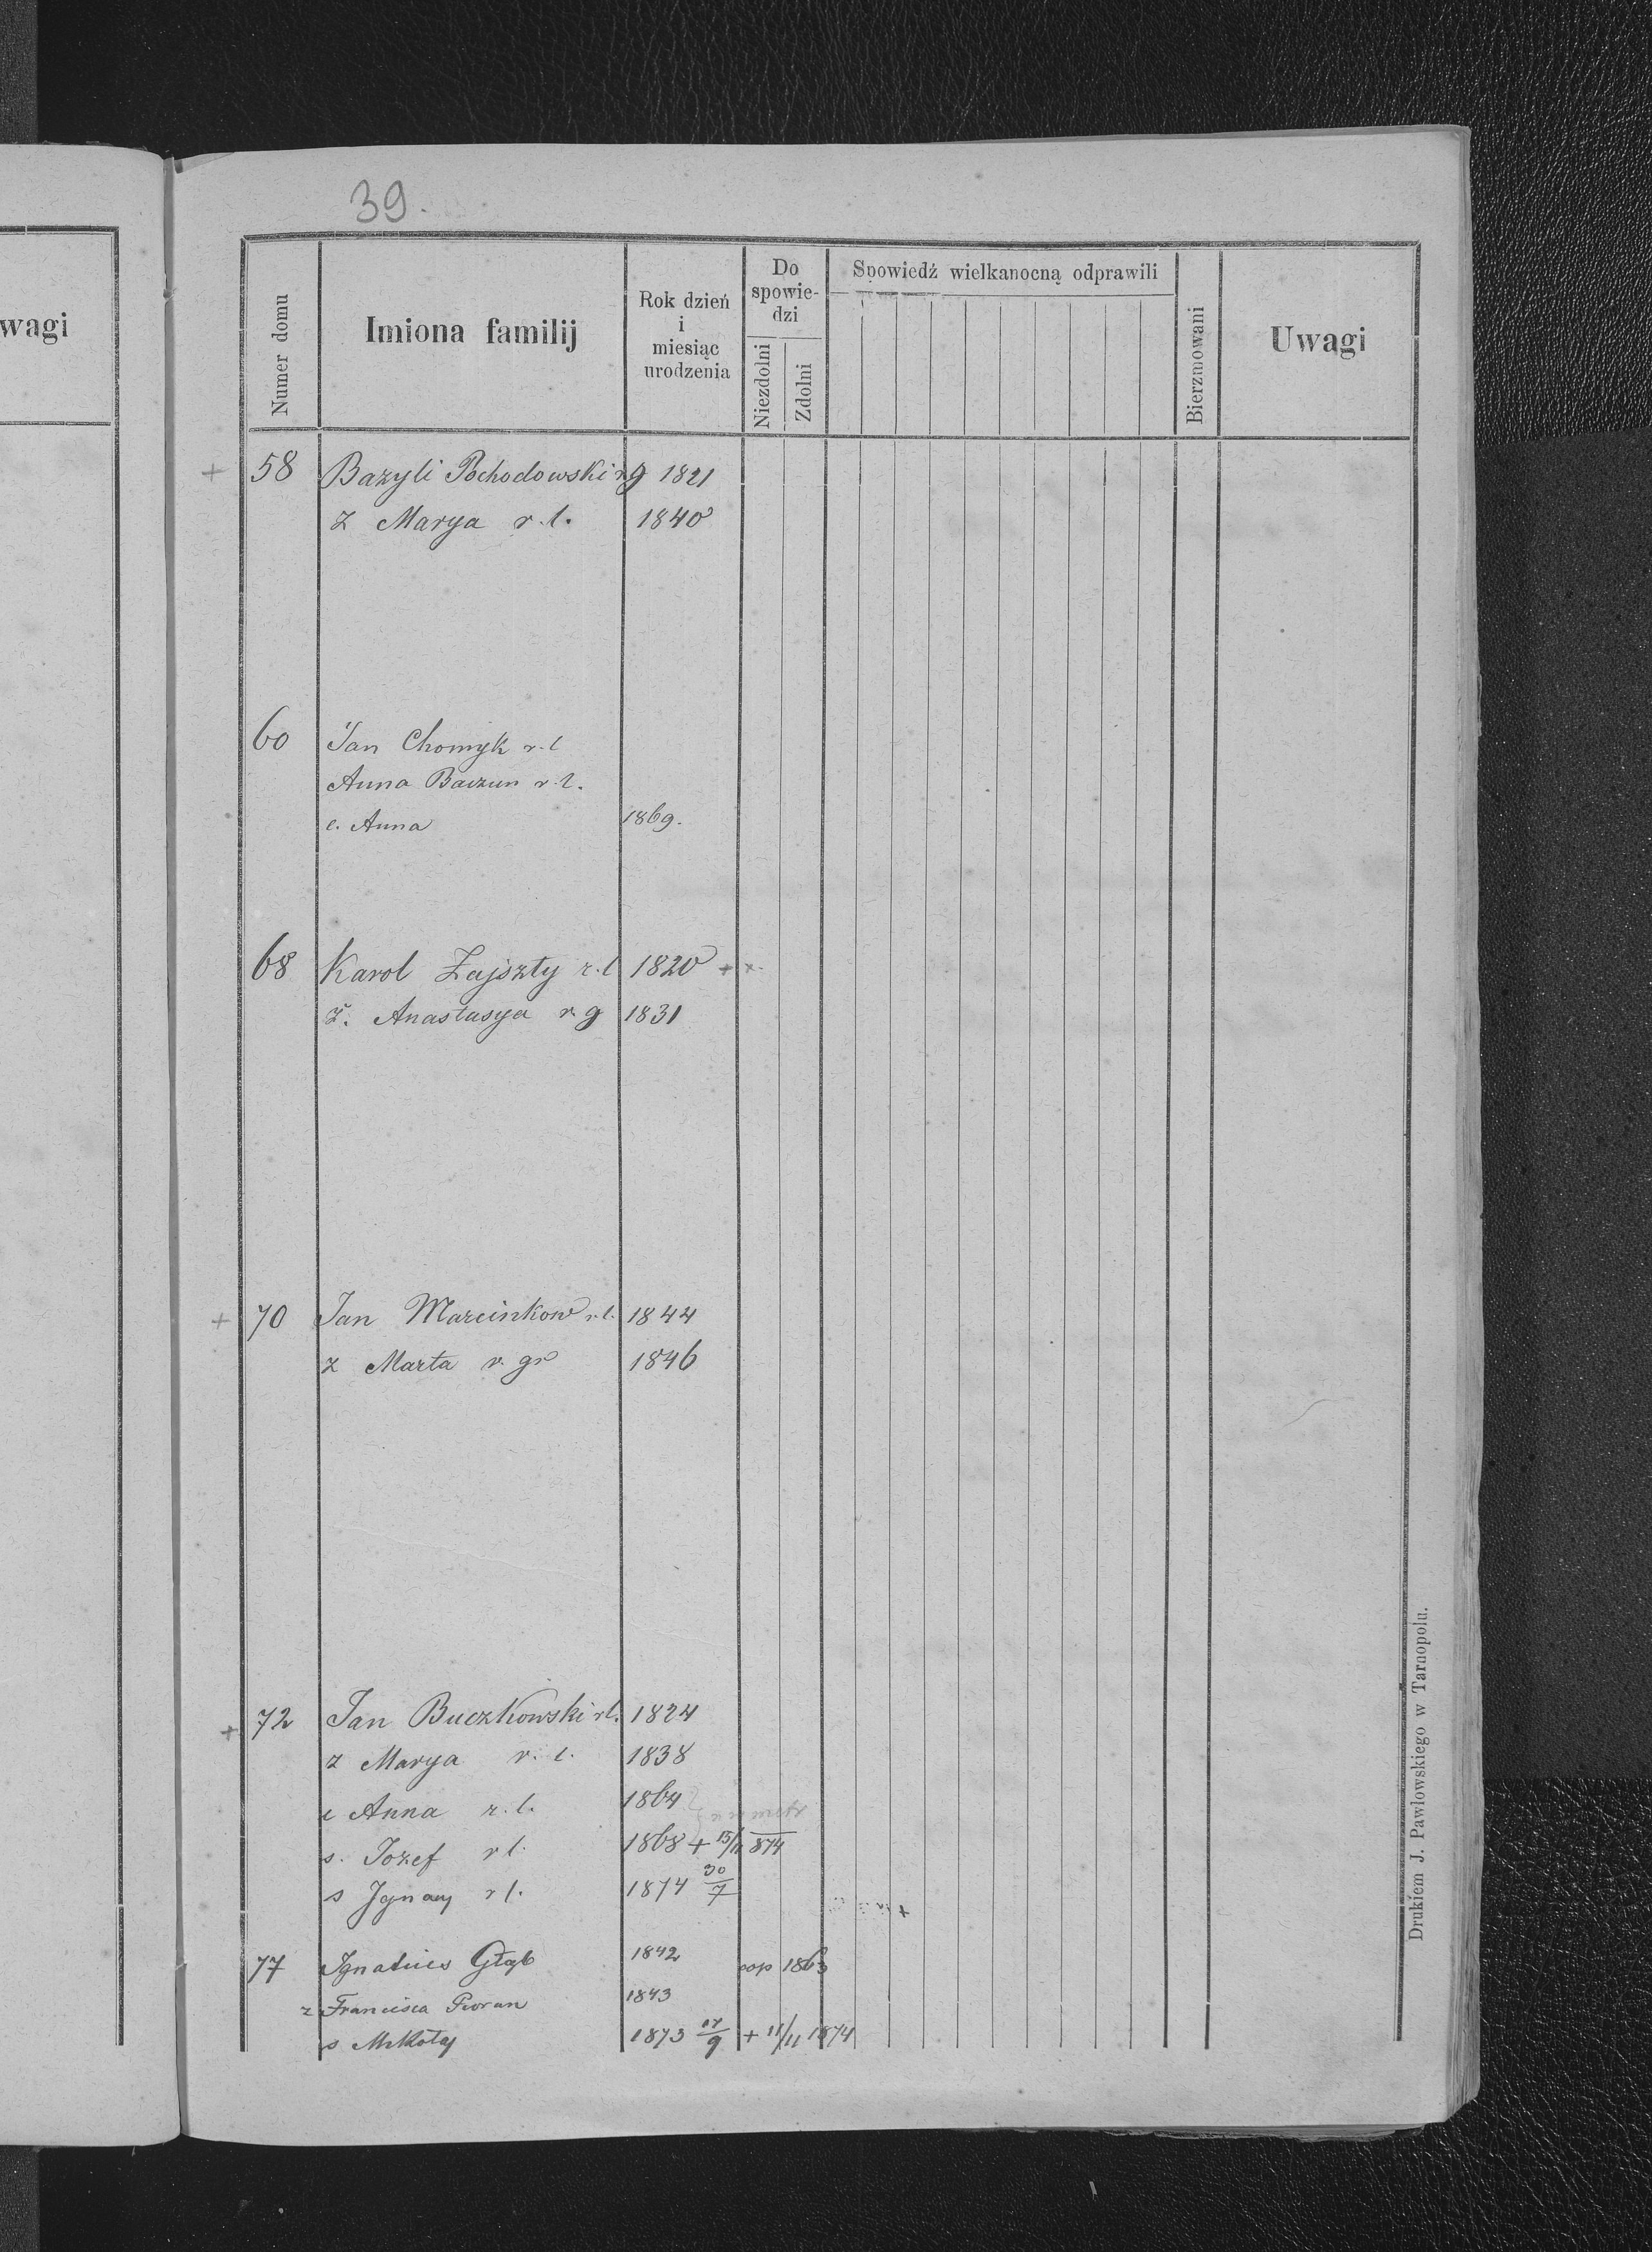 39.
wagi
Numer domu
Imiona familij
Rok dzień i miesiąc urodzenia
Do spowie-dzi
Niezdolni
Zdolni
Spowiedź wielkanocną odprawili
Bierzmowani
Uwagi
+ 58 Bazyli Pochodowski r g 1821
z Marya r. l. 1840
60 Jan Chomyk r. l
Anna Baczun r. l.
c. Anna 1869.
68 Karol Zajszły r. l 1820 + x
ż. Anastasya r. g 1831
+ 70 Jan Marcinkow r. l. 1844
z Marta r. gr 1846
+ 72 Jan Buczkowski r l. 1824
z Marya r. l. 1838
c Anna r. l. 1864
s. Jozef r l. 1868 + 15/11 874
s Ignacy r l. 1874 30/7
77 Ignatius Głąb 1842 cop 1863
z Francisca Pioran 1843
s Mikołaj 1873 17/9 + 11/11 1874
Drukiem J. Pawlowskiego w Tarnopolu.